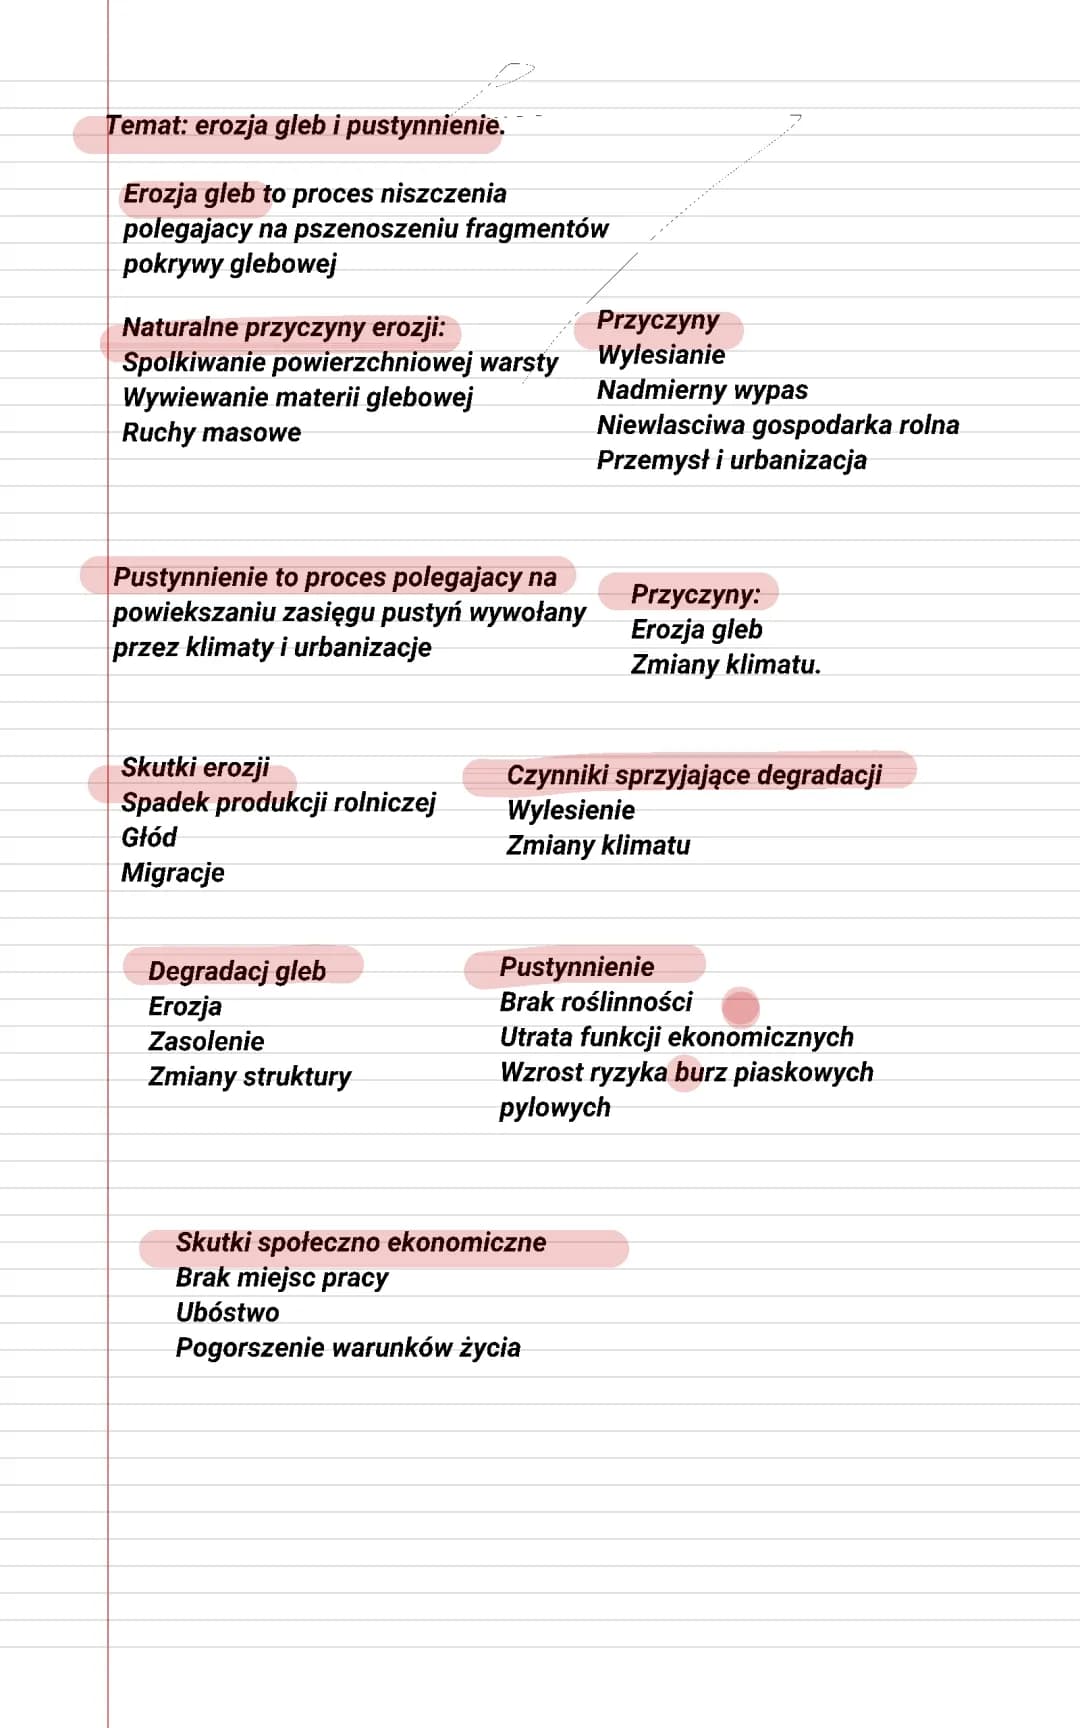 Temat: erozja gleb i pustynnienie.
Erozja gleb to proces niszczenia
polegajacy na pszenoszeniu fragmentów
pokrywy glebowej
Naturalne przyczyny erozji:
Spolkiwanie powierzchniowej warsty
Wywiewanie materii glebowej
Ruchy masowe
Przyczyny
Wylesianie
Nadmierny wypas
Niewlasciwa gospodarka rolna
Przemysł i urbanizacja
Pustynnienie to proces polegajacy na
powiekszaniu zasięgu pustyń wywołany
przez klimaty i urbanizacje
Przyczyny:
Erozja gleb
Zmiany klimatu.
Skutki erozji
Spadek produkcji rolniczej
Głód
Migracje
Czynniki sprzyjające degradacji
Wylesienie
Zmiany klimatu
Degradacj gleb
Erozja
Zasolenie
Zmiany struktury
Pustynnienie
Brak roślinności
Utrata funkcji ekonomicznych
Wzrost ryzyka burz piaskowych
pylowych
Skutki społeczno ekonomiczne
Brak miejsc pracy
Ubóstwo
Pogorszenie warunków życia